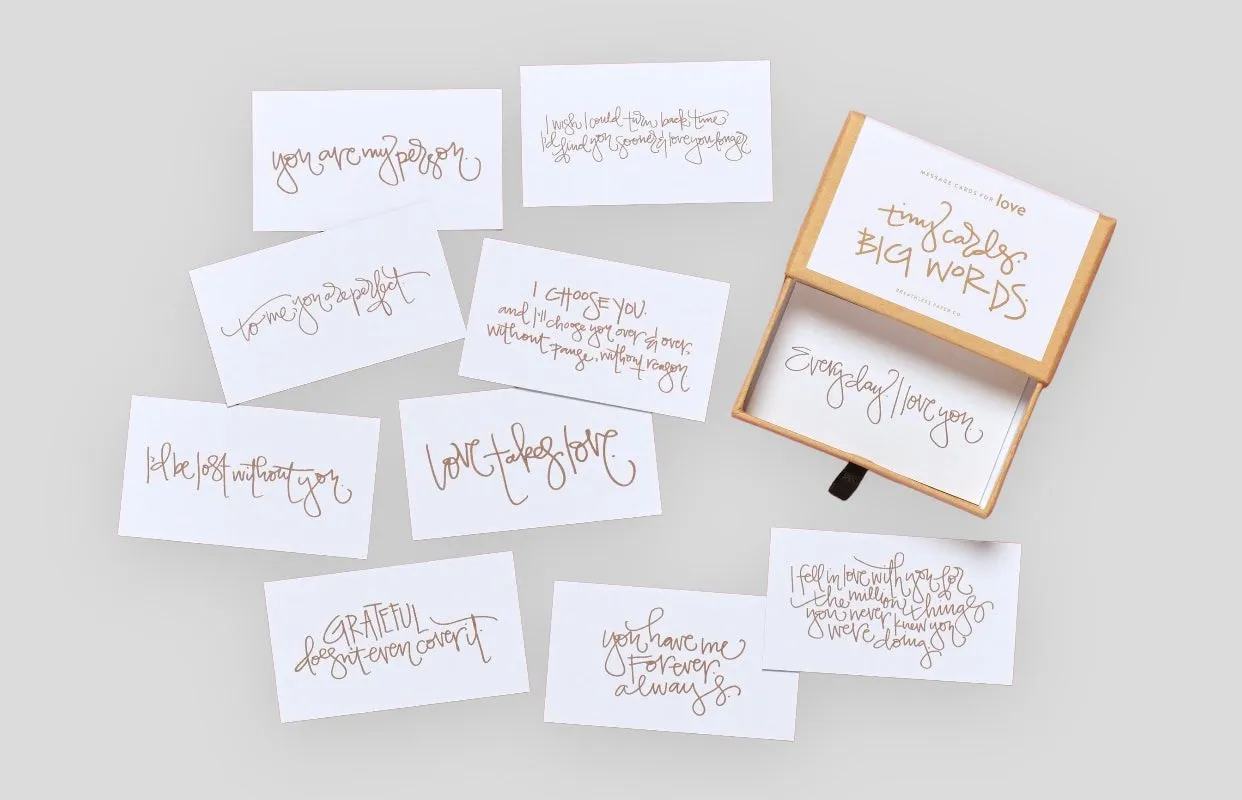 you are my person.
I wish I could turn back time
I'd find you sooner & love you longer
MESSAGE CARDS FOR love
tiny cards.
BIG WORDS.
BREATHLESS PAPER CO.
Every day I love you.
to me, you are perfect.
I CHOOSE YOU.
and I'll choose you over & over.
without pause, without reason
I'd be lost without you.
love takes love.
GRATEFUL
doesn't even cover it.
you have me
Forever.
always.
I fell in love with you for
the million things
you never knew you
were doing.